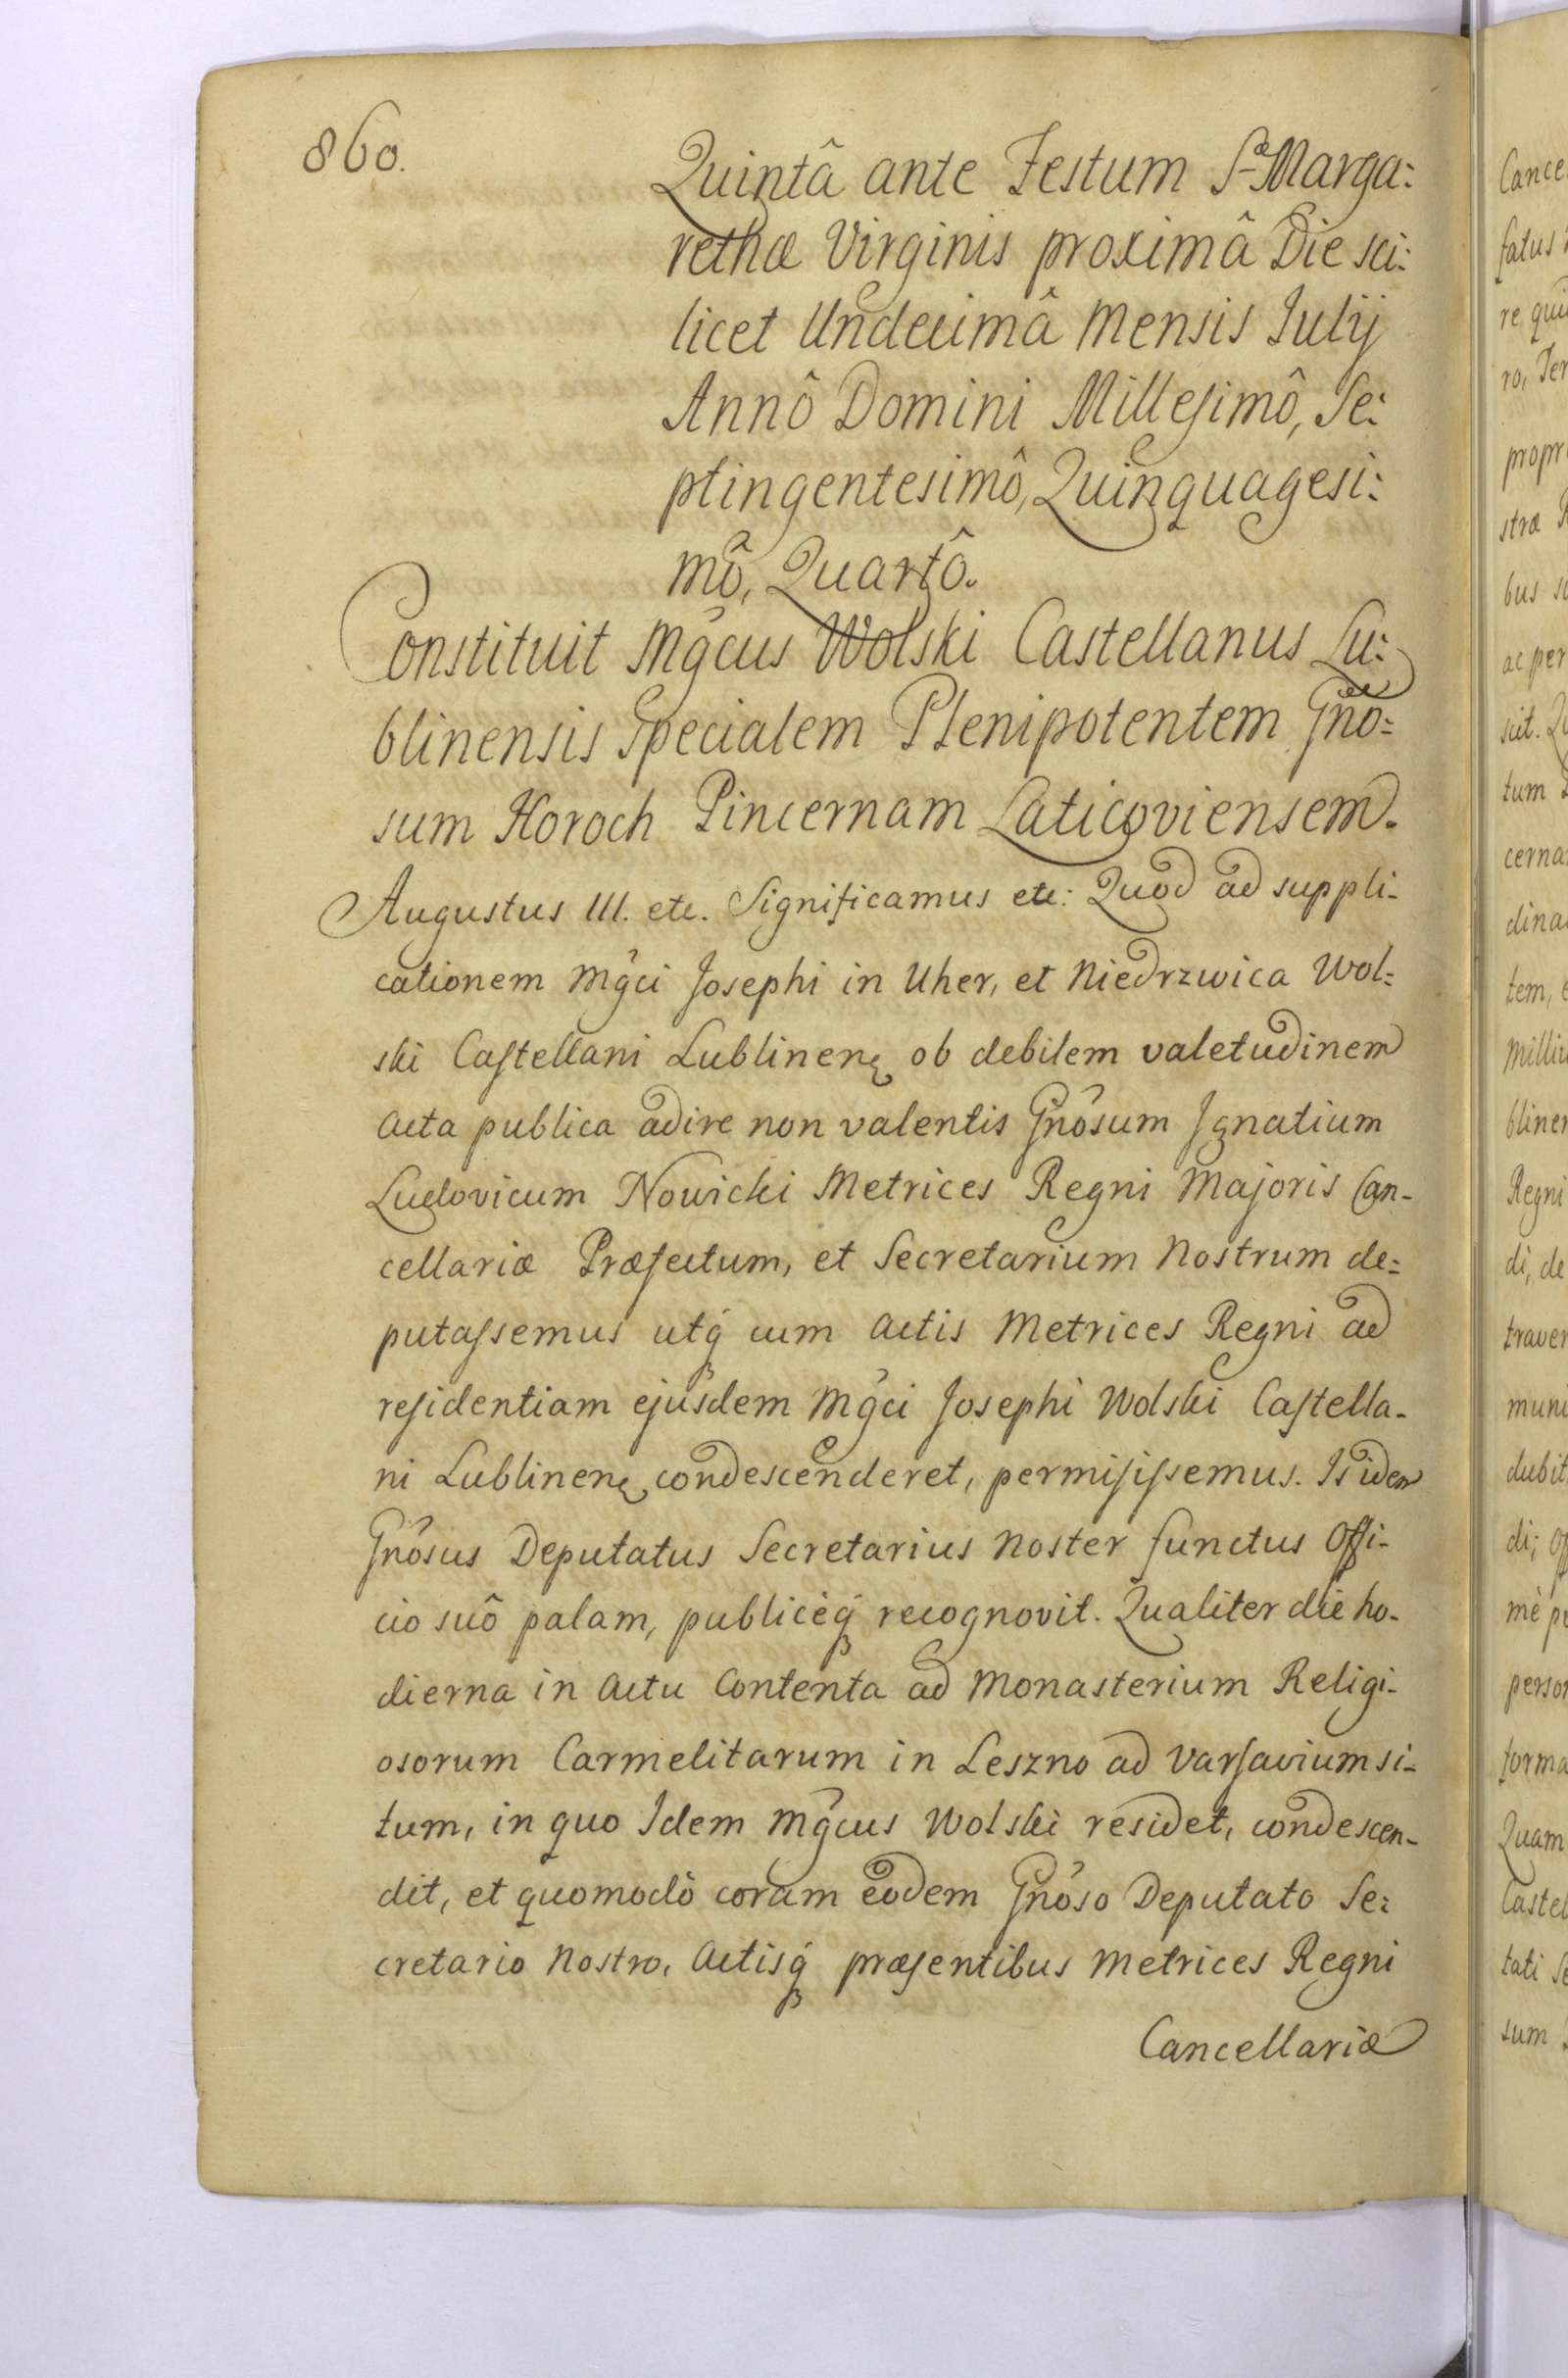 860.
Quintâ ante Festum Sae Marga:
rethæ Virginis proximâ Die sci:
licet Undecimâ Mensis Julij
Annô Domini Millesimô, Se:
ptingentesimô, Quinquagesi:
mô, Quartô.
Constituit Mgcus Wolski Castellanus Lu:
blinensis Specialem Plenipotentem Gno=
sum Horoch Pincernam Laticoviensem.
Augustus III. etc. Significamus etc: Quod ad suppli-
cationem Mgci Josephi in Uher, et Niedrzwica Wol=
ski Castellani Lublinen ob debilem valetudinem
acta publica adire non valentis Gnosum Ignatium
Ludovicum Nowicki Metrices Regni Majoris Can-
cellariæ Præfectum, et Secretarium Nostrum de=
putassemus utq cum actis Metrices Regni ad
residentiam ejusdem Mgci Josephi Wolski Castella-
ni Lublinen condescenderet, permisissemus. Is idem
Gnosus Deputatus Secretarius Noster functus Offi-
cio suô palam, publicèq recognovit. Qualiter die ho-
dierna in Actu Contenta ad Monasterium Religi-
osorum Carmelitarum in Leszno ad Varsaviam si-
tum, in quo Idem Mgcus Wolski residet, condescen-
dit, et quomodò coram eodem Gnoso Deputato Se:
cretario Nostro, Actisq præsentibus Metrices Regni
Cancellariæ